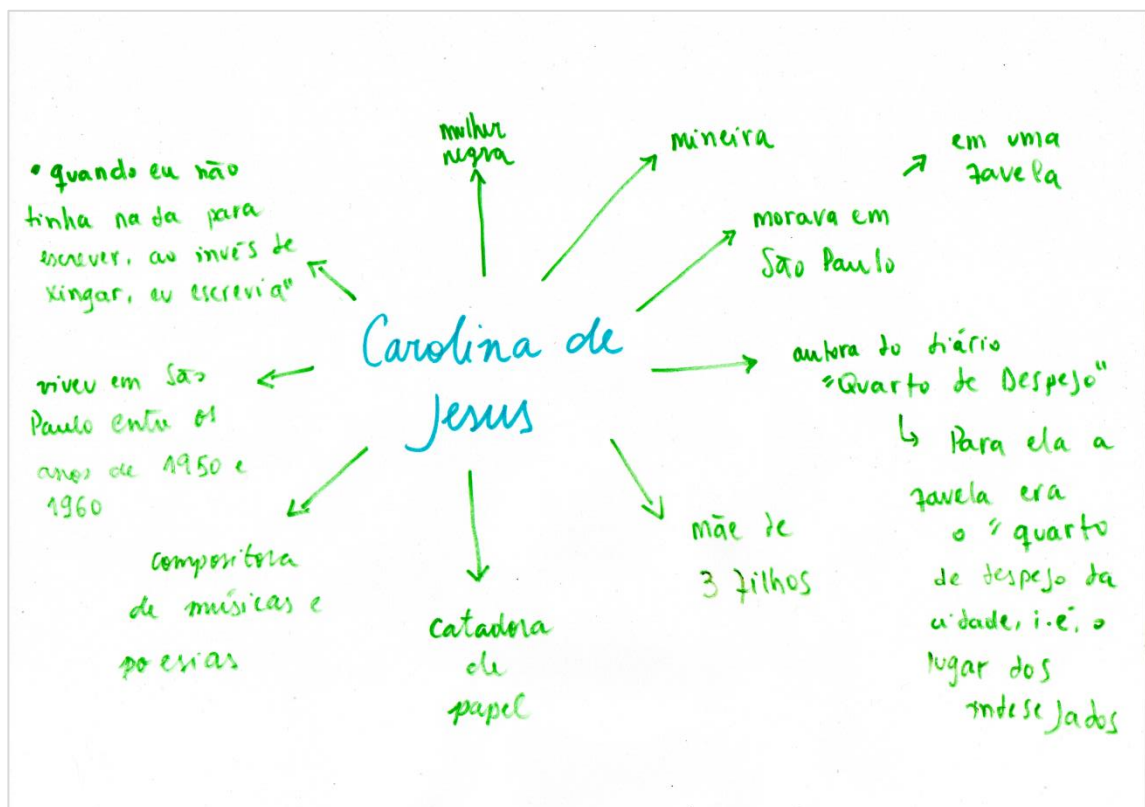 Carolina de
Jesus
mulher
negra
mineira
morava em
São Paulo
em uma
favela
autora do diário
"Quarto de Despejo"
↳ Para ela a
favela era
o "quarto
de despejo da
cidade, i.é, o
lugar dos
indesejados
mãe de
3 filhos
catadora
de
papel
compositora
de músicas e
poesias
viveu em São
Paulo entre os
anos de 1950 e
1960
"quando eu não
tinha nada para
escrever, ao invés de
xingar, eu escrevia"